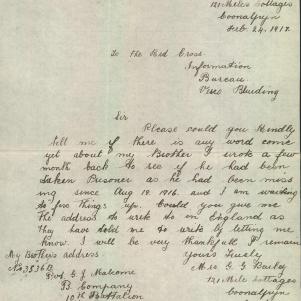 121 Miles Cottages
Coonalpyn
Feb. 24. 1917.
To the Red Cross
Information
Bureau
Verco Bluiding
Sir
Please could you kindly
tell me if there is any word come
yet about my Brother I wrok a few
month back to see if he had been
taken Prisoner as he had been miss
ing since Aug 19. 1916. and I am wanting
to fix things up. Could you give me
the address to wrek to in England as
they have told me to wrek by letting me
know. I will be very thankfull I remain
My Brothers address
Yours Truely
No 3536 B
Mrs G G Bailey
Pvt. G. J. Malcome
B. Company
121 Mile Cottages
10th Battalion
Coonalpyn